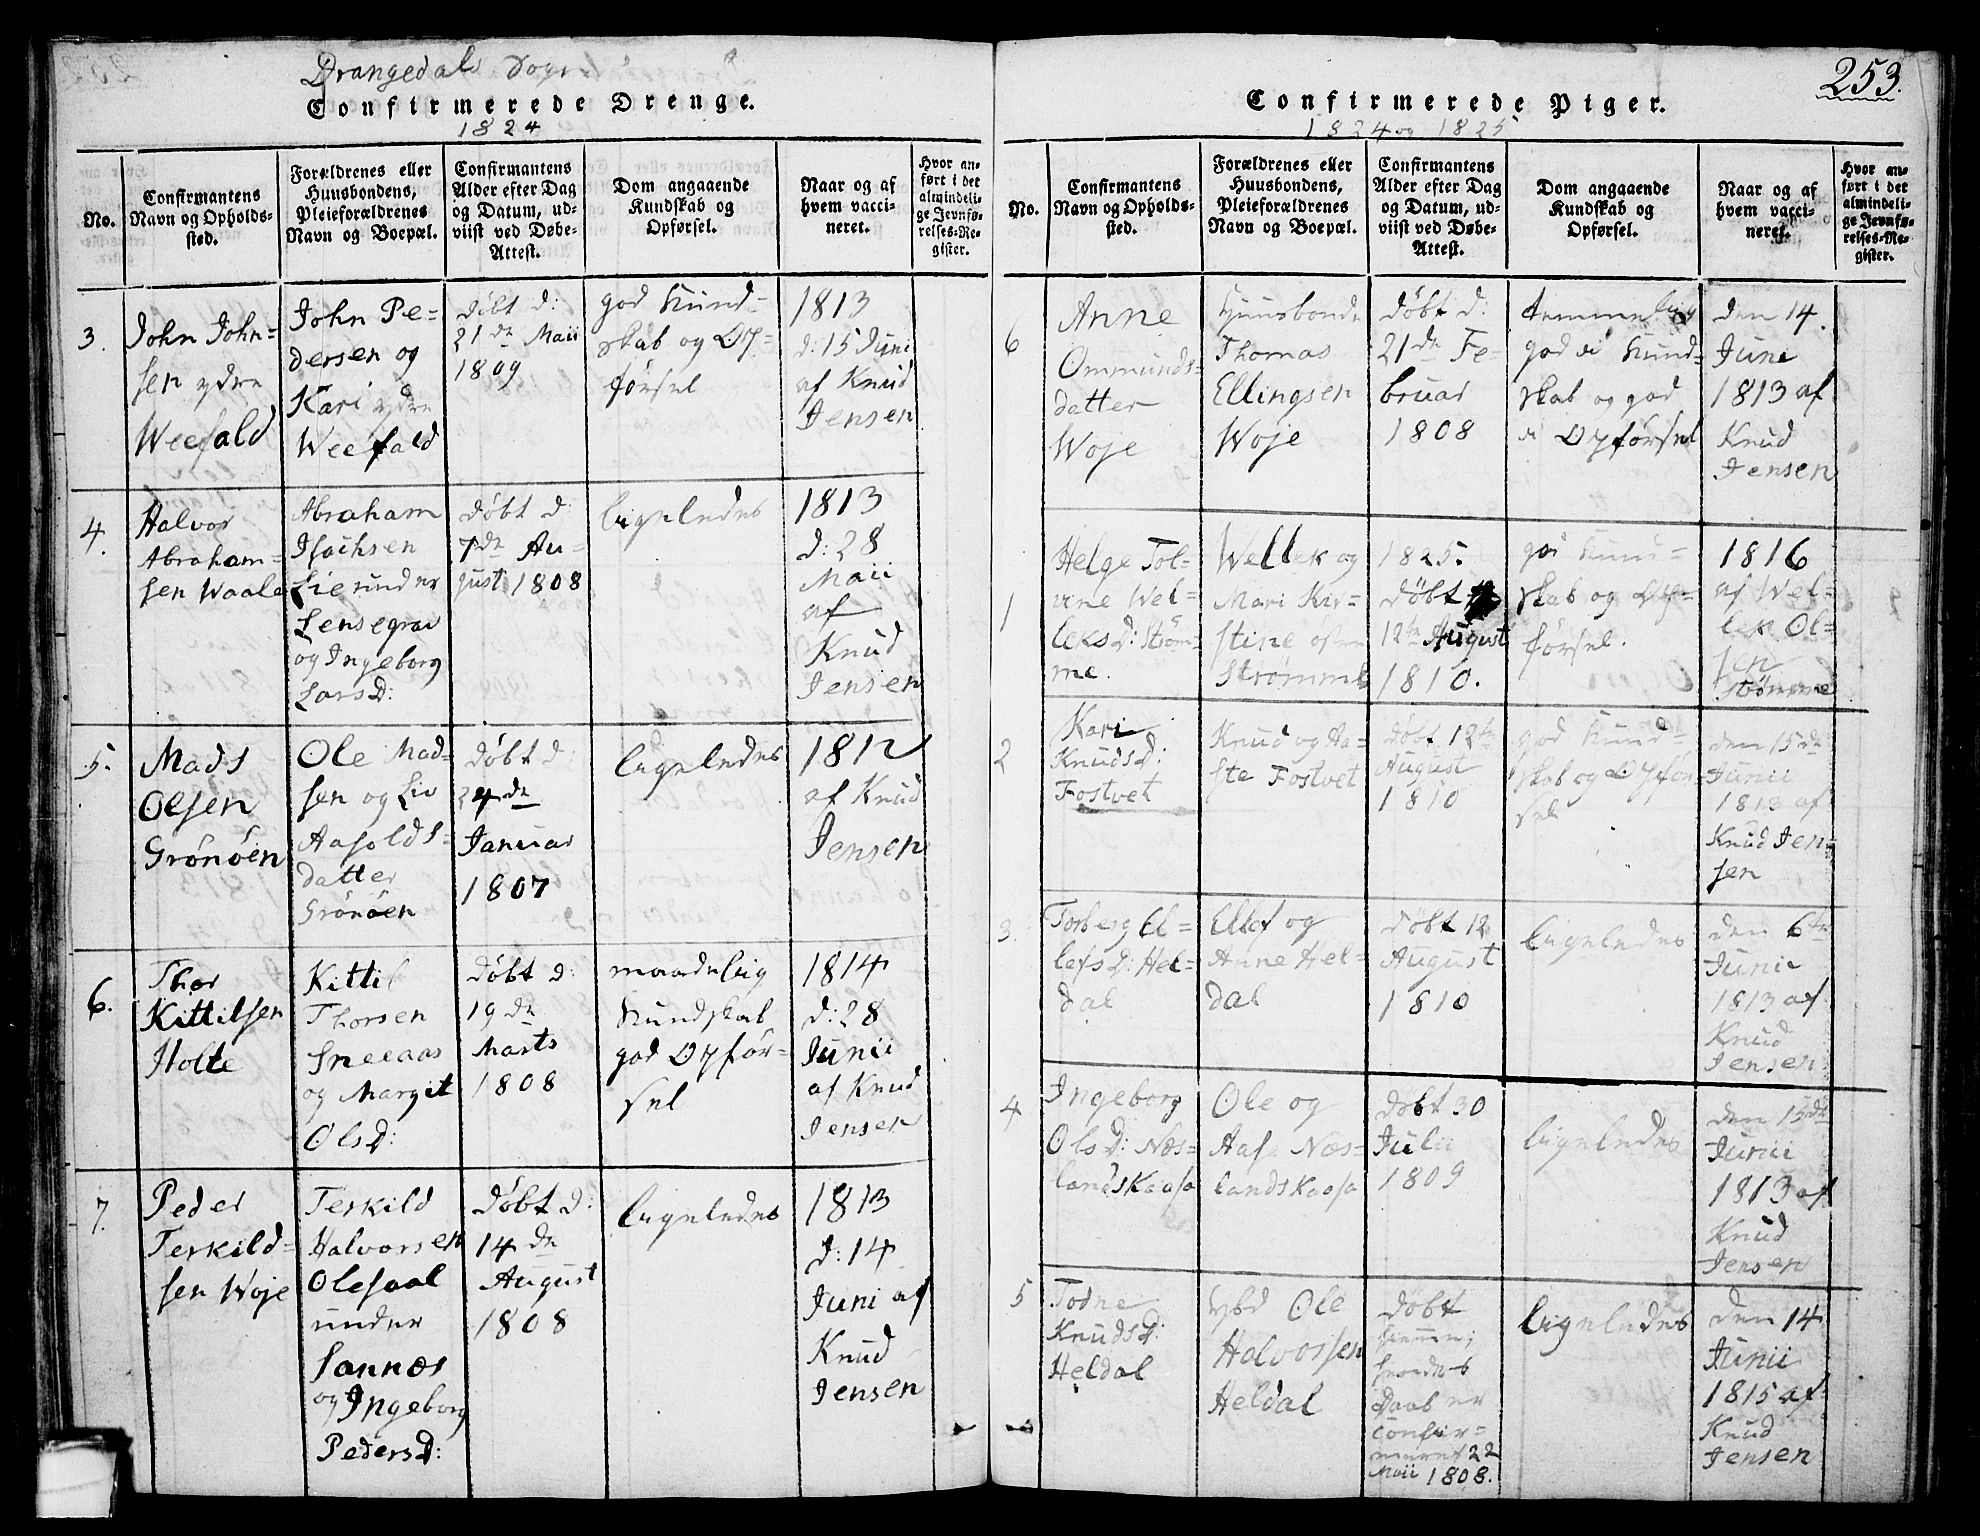 Drangedals Sogn
Confirmerede Drenge.
1824
No.
Confirmantens
Navn og Opholds-
sted.
Forældrenes eller
Huusbondens,
Pleieforældrenes
Navn og Boepæl.
Confirmantens
Alder efter Dag
og Datum, ud-
viist ved Døbe-
Attest.
Dom angaaende
Kundskab og
Opførsel.
Naar og af
hvem vacci-
neret.
Hvor an-
ført i det
almindeli-
ge Jevnfø-
relses-Re-
gister.
3.
John John-
sen ydre
Weefald
John Pe-
dersen og
Kari ydre
Weefald
Døbt d:
21de Maii
1809
god Kund-
skab og Op-
førsel
1813
d: 15 Juni
af Knud
Jensen
4.
Halvor
Abraham-
sen Waale
Abraham
Isachsen
Lie under
Lensegrav
og Ingeborg
LarsD:
Døbt d:
7de Au-
gust 1808
ligeledes
1813
d: 28
Maii
af
Knud
Jensen
5.
Mads
Olsen
Grønøen
Ole Mad-
sen og Liv
Aasolds-
datter
Grønøen
Døbt d:
24de
Januar
1807
ligeledes
1812
af Knud
Jensen
6.
Thor
Kittilsen
Holte
Kittil
Thorsen
Sneeaas
og Margit
OlsD:
Døbt d:
19de
Marts
1808
maadelig
Kundskab
god Opfør-
sel
1814
d: 28
Junii
af Knud
Jensen
7.
Peder
Terkild-
sen Woje
Terkild
Halvorsen
Olesaal
under
Sannæs
og Ingeborg
PedersD:
Døbt d:
14de
August
1808
ligeledes
1813
d: 14
Juni af
Knud
Jensen
253.
Confirmerede Piger.
1824 og 1825
No.
Confirmantens
Navn og Opholds-
sted.
Forældrenes eller
Huusbondens,
Pleieforældrenes
Navn og Boepæl.
Confirmantens
Alder efter Dag
og Datum, ud-
viist ved Døbe-
Attest.
Dom angaaende
Kundskab og
Opførsel.
Naar og af
hvem vacci-
neret.
Hvor an-
ført i det
almindeli-
ge Jevnfø-
relses-Re-
gister.
6
Anne
Ommunds-
datter
Woje
Huusbonde
Thomas
Ellingsen
Woje
Døbt d:
21de Fe-
bruar
1808
temmelig
god i Kund-
skab og god
i Opførsel
Den 14.
Juni
1813 af
Knud
Jensen
1
Helge Tol-
vine Wel-
leksD: Strøm-
me.
Wellek og
Mari Kir-
stine østre
Strømme
1825.
Døbt
12te August
1810.
god Kund-
skab og Op-
førsel.
1816
af Wel-
lek Ol-
sen
Strømme
2
Kari
KnudsD:
Fostvet
Knud og Aa-
ste Fostvet
Døbt 12te
August
1810
god Kund-
skab og Opfør-
sel
den 15de
Junii
1813 af
Knud Jen-
sen
3.
Torberg El-
lefsD: Hel-
dal
Ellef og
Anne Hel-
dal
Døbt 12
August
1810
ligeledes
den 6te
Junii
1813 af
Knud
Jensen
4
Ingeborg
OlsD: Næs-
landskaasa
Ole og
Aase Næs-
landskaasa
Døbt 30
Julii
1809
ligeledes
den 15de
Junii
1813 af
Knud
Jensen
5
Todne
KnudsD:
Heldal
Hbd Ole
Halvorsen
Heldal
Døbt
hiemme;
hendes
Daab er
confir-
meret 22
Maii 1808.
ligeledes
den 14
Junii
1815 af
Knud
Jensen